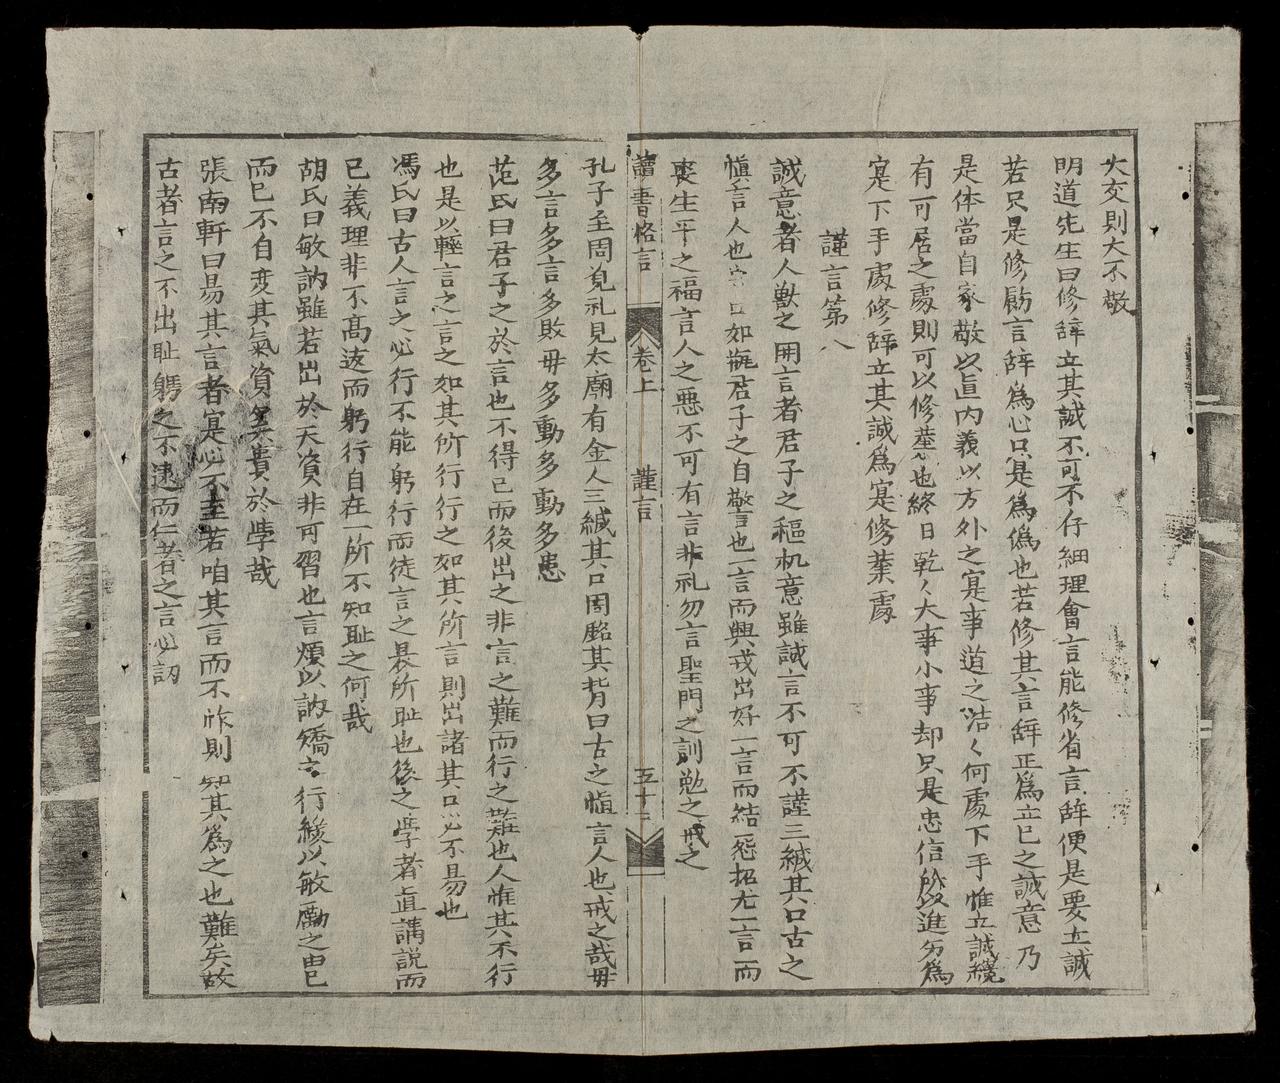 大交則大不敬
明道先生曰修辞立其誠不可不仔細理會言能修省言辞便是要立誠
若只是修飭言辞為心只是為偽也若修其言辞正為立已之誠意乃
是体當自家敬以直内義以方外之寔事道之浩々何處下手惟立誠纔
有可居之處則可以修葉也終日乾々大事小事却只是忠信所以進为為
寔下手處修辞立其誠為寔修業處
謹言第八
誠意者人獣之開言者君子之樞机意雖誠言不可不謹三緘其口古之
慎言人也守口如瓶君子之自敬言也一言而興戎出好一言而結怨招尤一言而
喪生平之福言人之悪不可有言非礼勿言聖門之訓勉之戒之
讀書格言 卷上 謹言 五十
孔子至周覍礼見太廟有金人三緘其口図銘其背曰古之慎言人也戒之哉毋
多言多言多敗毋多動多動多患
范氏曰君子之於言也不得已而後出之非言之難而行之難也人惟其不行
也是以輕言之言之如其所行行之如其所言則出諸其口必不易也
馮氏曰古人言之必行不能躬行而徒言之是所耻也後之學者直講説而
已義理非不高遠而躬行自在一所不知耻之何哉
胡氏曰敏訥雖若出於天資非可習也言煩以訥矯之行緩以敏勵之由已
而已不自变其氣資奚貴於學哉
張南軒曰易其言者寔心不至若咱其言而不怍則知其為之也難矣故
古者言之不出耻躬之不逮而仁者之言必訒